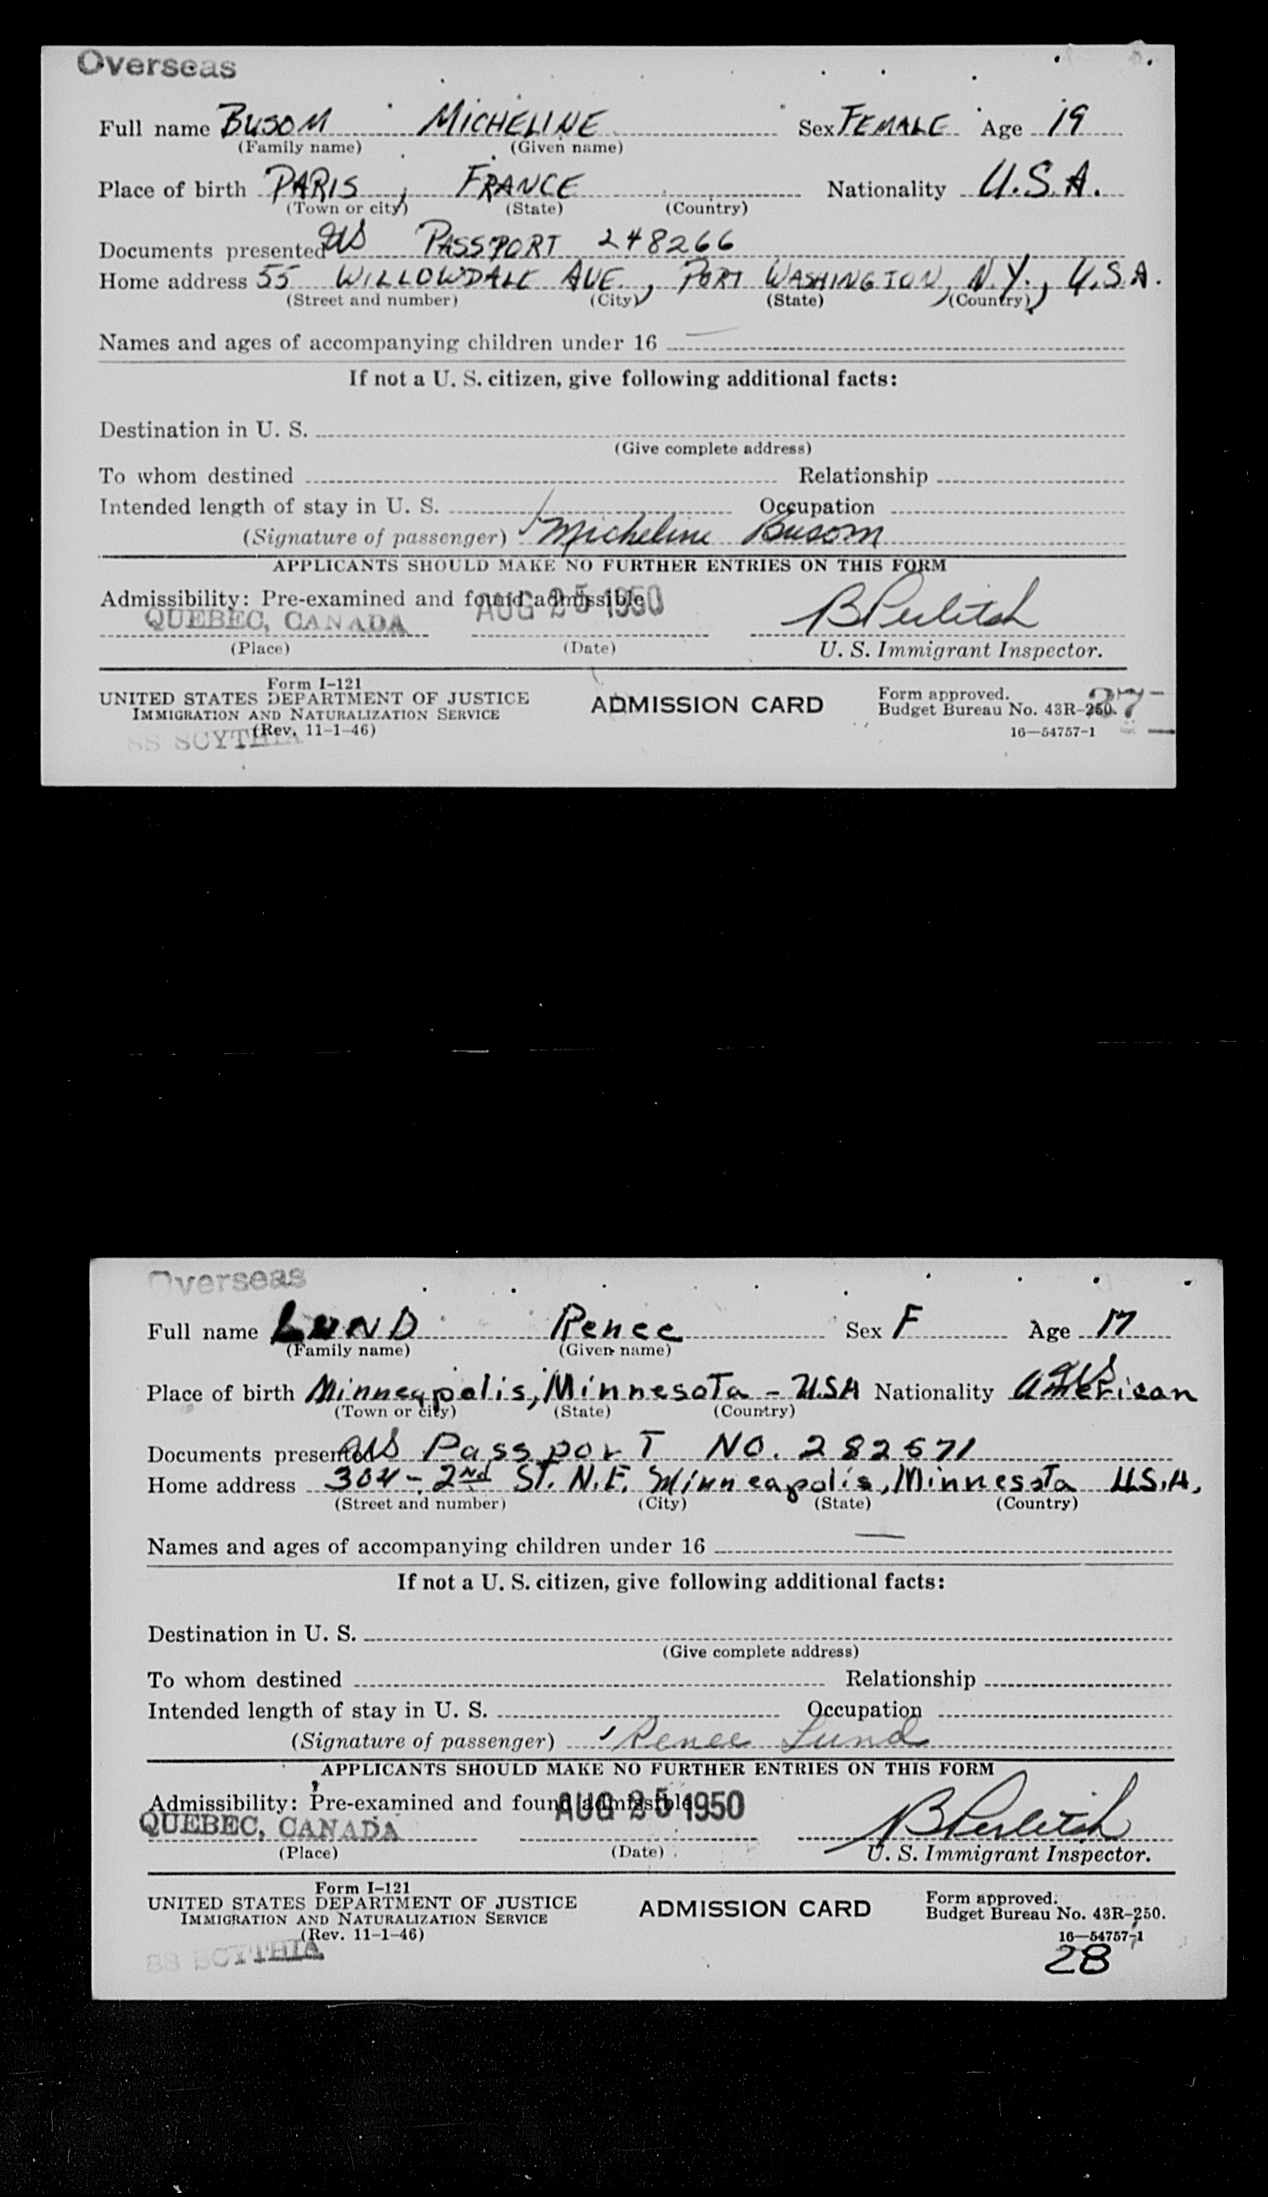 Overseas
Full name BUSOM MICHELINE Sex FEMALE Age 19
(Family name) (Given name)
Place of birth PARIS, FRANCE Nationality U.S.A.
(Town or city) (State) (Country)
Documents presented US PASSPORT 248266
Home address 55 WILLOWDALE AVE., PORT WASHINGTON, N.Y., U.S.A.
(Street and number) (City) (State) (Country)
Names and ages of accompanying children under 16 —
If not a U. S. citizen, give following additional facts:
Destination in U. S.
(Give complete address)
To whom destined Relationship
Intended length of stay in U. S. Occupation
(Signature of passenger) Micheline Busom
APPLICANTS SHOULD MAKE NO FURTHER ENTRIES ON THIS FORM
Admissibility: Pre-examined and found admissible
QUEBEC, CANADA AUG 25 1950 B Perlitsh
(Place) (Date) U. S. Immigrant Inspector.
Form I-121
UNITED STATES DEPARTMENT OF JUSTICE
IMMIGRATION AND NATURALIZATION SERVICE
(Rev. 11-1-46)
SS SCYTHIA
ADMISSION CARD
Form approved.
Budget Bureau No. 43R-250.
27
16—54757-1
Overseas
Full name LUND Renee Sex F Age 17
(Family name) (Given name)
Place of birth Minneapolis, Minnesota - USA Nationality American US
(Town or city) (State) (Country)
Documents presented US Passport NO. 282571
Home address 304 - 2nd St. N.E. Minneapolis, Minnesota U.S.A.
(Street and number) (City) (State) (Country)
Names and ages of accompanying children under 16 —
If not a U. S. citizen, give following additional facts:
Destination in U. S.
(Give complete address)
To whom destined Relationship
Intended length of stay in U. S. Occupation
(Signature of passenger) Renee Lund
APPLICANTS SHOULD MAKE NO FURTHER ENTRIES ON THIS FORM
Admissibility: Pre-examined and found admissible
QUEBEC, CANADA AUG 25 1950 B Perlitsh
(Place) (Date) U. S. Immigrant Inspector.
Form I-121
UNITED STATES DEPARTMENT OF JUSTICE
IMMIGRATION AND NATURALIZATION SERVICE
(Rev. 11-1-46)
SS SCYTHIA
ADMISSION CARD
Form approved.
Budget Bureau No. 43R-250.
16—54757-1
28